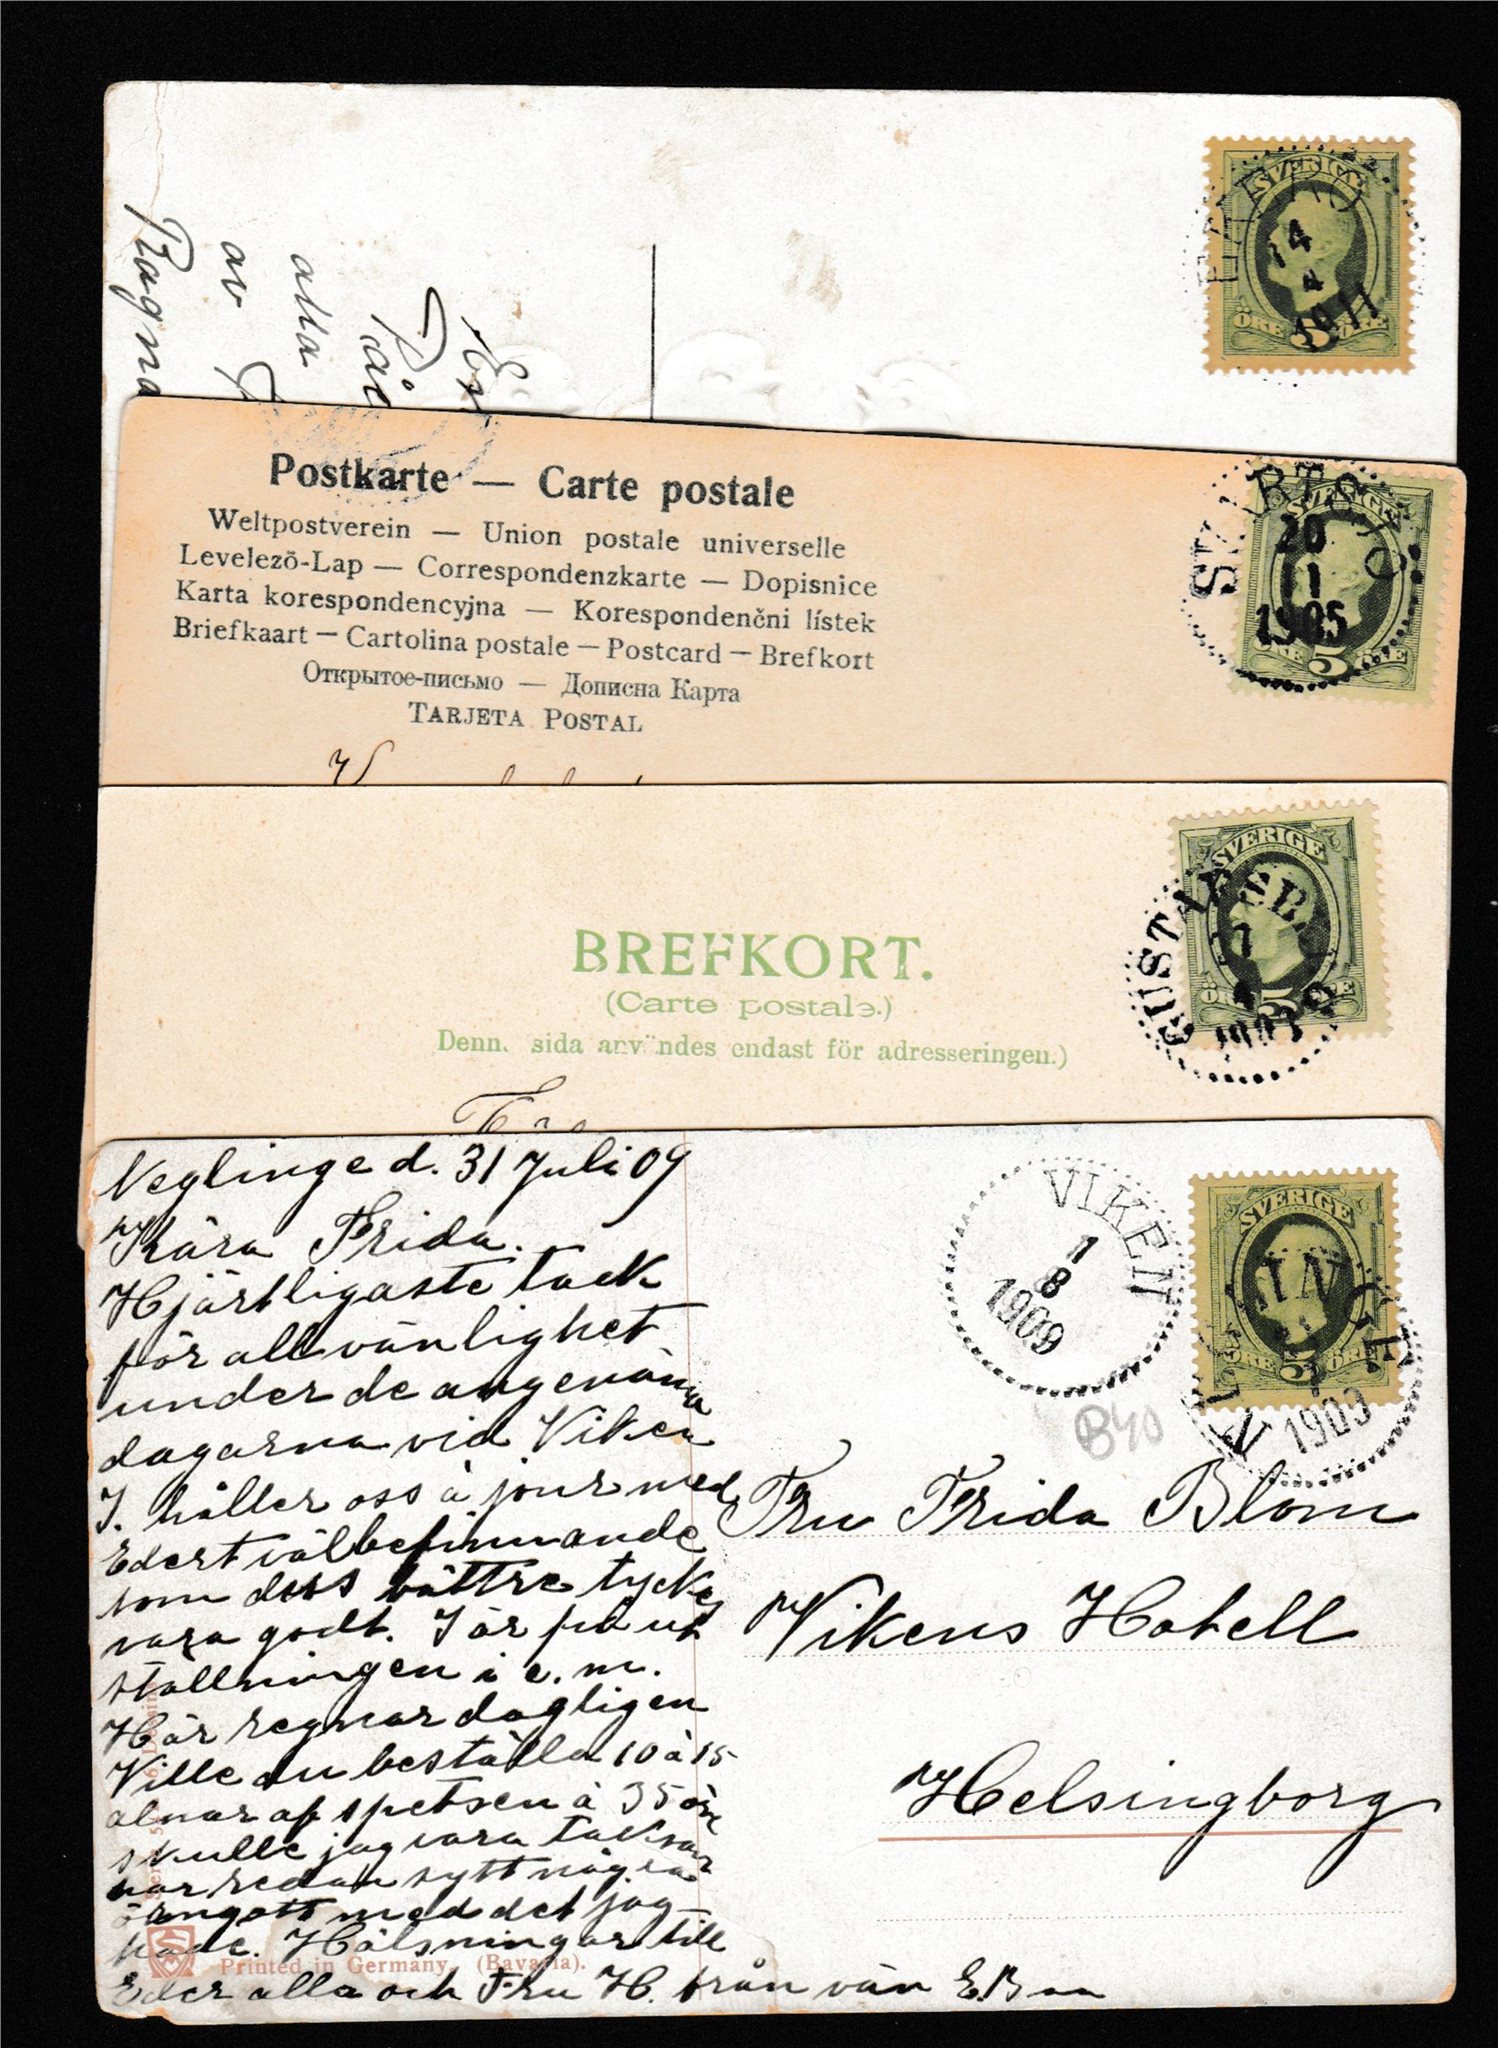 alla
av
Ragna
SVERIGE
14
4
1911
ÖRE 5 ÖRE
Postkarte — Carte postale
Weltpostverein — Union postale universelle
Levelezõ-Lap — Correspondenzkarte — Dopisnice
Karta korespondencyjna — Korespondenčni lístek
Briefkaart — Cartolina postale — Postcard — Brefkort
Открытое-письмо — Дописна Карта
TARJETA POSTAL
SVARTSJÖ
20
1
1905
SVERIGE
ÖRE 5 ÖRE
BREFKORT.
(Carte postale.)
Denn. sida användes endast för adresseringen.)
SVERIGE
GUSTAFSBERG
17
4
1907
Neglinge d. 31 Juli 09
Kära Frida.
Hjärtligaste tack
för all vänlighet
under de angenäma
dagarna vid Viken
I. håller oss à jour med
Edert välbefinnande
som dess bättre tyckes
vara godt. I är på ut
ställningen i e. m.
Här regnar dagligen
Ville du beställa 10 à 15
alnar af spetsen à 35 öre
skulle jag vara tacksam
har redan sytt några
örngott med det jag
hade. Hälsningar till
Eder alla och Fru H. från vän E.B
Printed in Germany. (Bavaria).
VIKEN
1
8
1909
SVERIGE
ÖRE 5 ÖRE
NEGLINGE
1909
B40
Fru Frida Blom
Vikens Hotell
Helsingborg